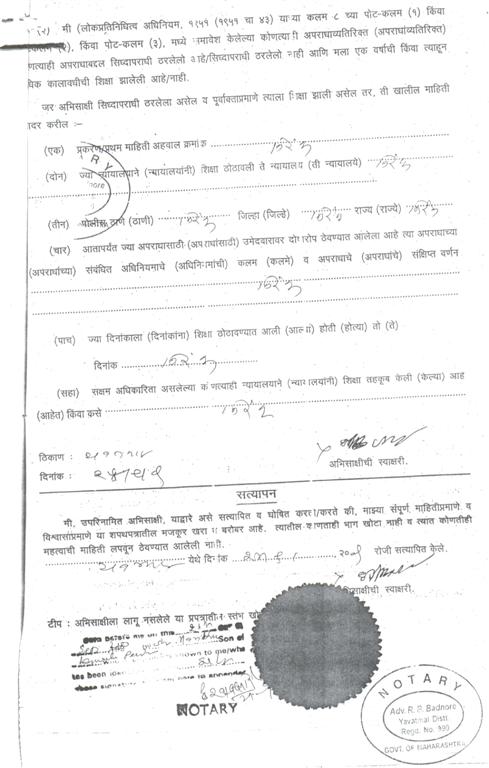 (२) मी (लोकप्रतिनिधित्व अधिनियम, १९५१ (१९५१ चा ४३) याच्या कलम ८ च्या पोट-कलम (१) किंवा
(२), किंवा पोट-कलम (३), मध्ये समावेश केलेल्या कोणत्याही अपराधाव्यतिरिक्त (अपराधांव्यतिरिक्त)
अपराधाबद्दल सिध्दापराधी ठरलेलो आहे/सिध्दापराधी ठरलेलो नाही आणि मला एक वर्षाची किंवा त्याहून
कालावधीची शिक्षा झालेली आहे/नाही.
जर अभिसाक्षी सिध्दापराधी ठरलेला असेल व पूर्वोक्ताप्रमाणे त्याला शिक्षा झाली असेल तर, ती खालील माहिती
सादर करील :-
(एक) प्रकरण/प्रथम माहिती अहवाल क्रमांक निरंक
(दोन) ज्या न्यायालयाने (न्यायालयांनी) शिक्षा ठोठावली ते न्यायालय (ती न्यायालये) निरंक
(तीन) पोलीस ठाणे (ठाणी) निरंक जिल्हा (जिल्हे) निरंक राज्य (राज्ये) निरंक
(चार) आतापर्यंत ज्या अपराधासाठी (अपराधांसाठी) उमेदवारावर दोषारोप ठेवण्यात आलेला आहे त्या अपराधाच्या
(अपराधांच्या) संबंधित अधिनियमाचे (अधिनियमांची) कलम (कलमे) व अपराधाचे (अपराधांचे) संक्षिप्त वर्णन
निरंक
(पाच) ज्या दिनांकाला (दिनांकांना) शिक्षा ठोठावण्यात आली (आल्या) होती (होत्या) तो (ते)
दिनांक निरंक
(सहा) सक्षम अधिकारिता असलेल्या कोणत्याही न्यायालयाने (न्यायालयांनी) शिक्षा तहकूब केली (केल्या) आहे
(आहेत) किंवा कसे निरंक
ठिकाण : यवतमाळ
दिनांक :
अभिसाक्षीची स्वाक्षरी.
सत्यापन
मी, उपरिनामित अभिसाक्षी, याद्वारे असे सत्यापित व घोषित करतो/करते की, माझ्या संपूर्ण माहितीप्रमाणे व
विश्वासाप्रमाणे या शपथपत्रातील मजकूर खरा व बरोबर आहे. त्यातील कोणताही भाग खोटा नाही व त्यात कोणतीही
महत्वाची माहिती लपवून ठेवण्यात आलेली नाही.
यवतमाळ येथे दिनांक रोजी सत्यापित केले.
अभिसाक्षीची स्वाक्षरी.
टीप : अभिसाक्षीला लागू नसलेले या प्रपत्रातील स्तंभ
Son of
NOTARY
NOTARY
Adv. R. R. Badnore
Yavatmal Distt.
Regd. No. 990
GOVT. OF MAHARASHTRA